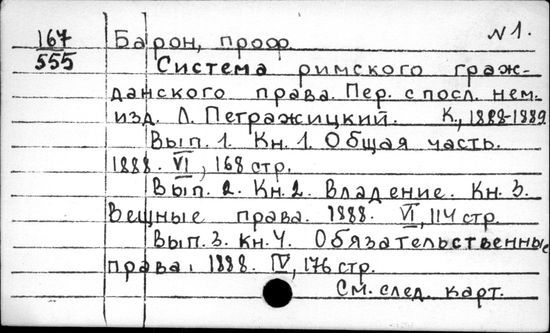 167 Барон, проф. №1.
555 Система римского граж-
данского права. Пер. с посл. нем.
изд. Л. Петражицкий. К., 1888-1889
Вып. 1. Кн. 1. Общая часть.
1888. VI, 168 стр.
Вып. 2. Кн. 2. Владение. Кн. 3.
Вещные права. 1888. VI, 114 стр.
Вып. 3. Кн. 4. Обязательственные
права. 1888. IV, 176 стр.
См. след. карт.